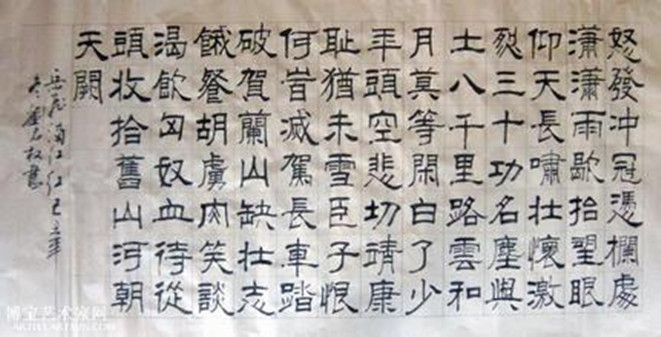 怒發冲冠憑欄處
瀟瀟雨歇抬望眼
仰天長嘯壯懷激
烈三十功名塵與
土八千里路雲和
月莫等閑白了少
年頭空悲切靖康
耻猶未雪臣子恨
何旹滅駕長車踏
破賀蘭山缺壯志
餓餐胡虜肉笑談
渴飲匈奴血待從
頭收拾舊山河朝
天闕
岳飛滿江紅己丑年
冬書
博宝艺术家网